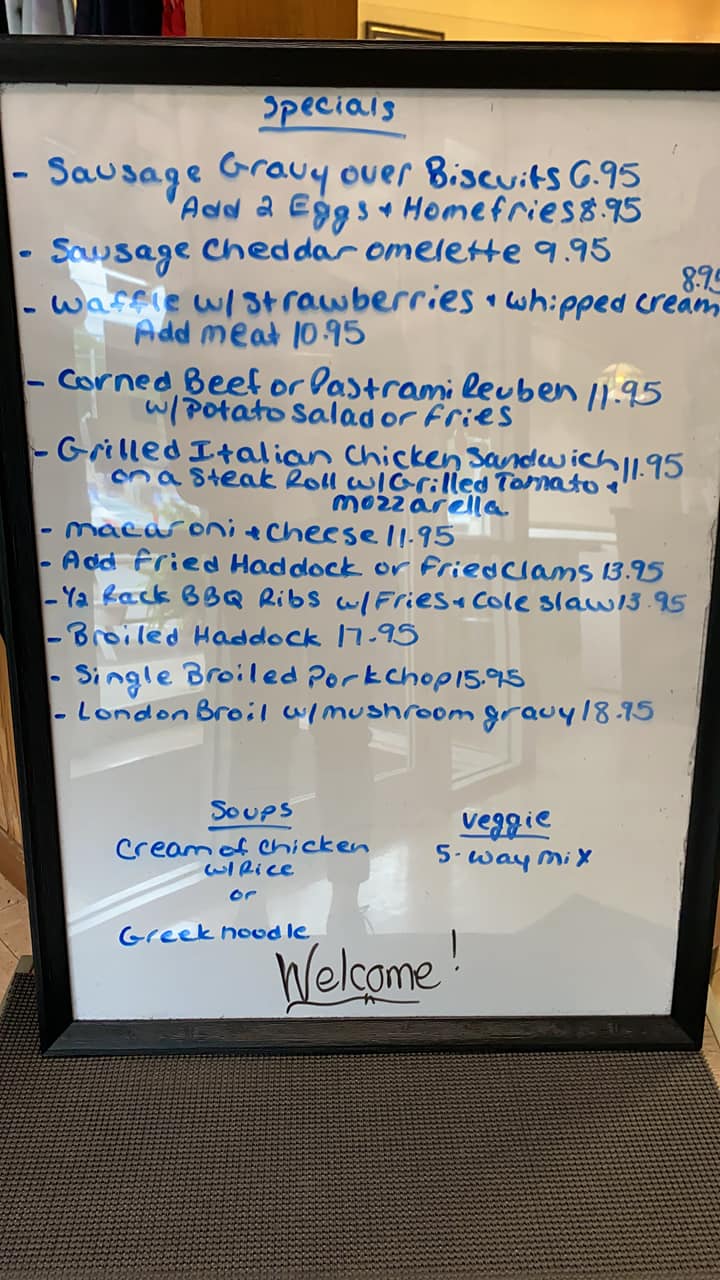 Specials
- Sausage Gravy over Biscuits 6.95
Add 2 Eggs + Homefries 8.95
- Sausage Cheddar omelette 9.95
8.95
- Waffle w/ strawberries + whipped cream
Add meat 10.95
- Corned Beef or Pastrami Reuben 11.95
w/ Potato Salad or Fries
- Grilled Italian Chicken Sandwich 11.95
on a Steak Roll w/ Grilled Tomato +
mozzarella
- macaroni + cheese 11.95
- Add Fried Haddock or Fried Clams 13.95
- 1/2 Rack BBQ Ribs w/ Fries + Cole slaw 13.95
- Broiled Haddock 17.95
- Single Broiled Porkchop 15.95
- London Broil w/ mushroom gravy 18.95
Soups
Cream of Chicken
w/ Rice
or
Greek noodle
Veggie
5-way mix
Welcome!